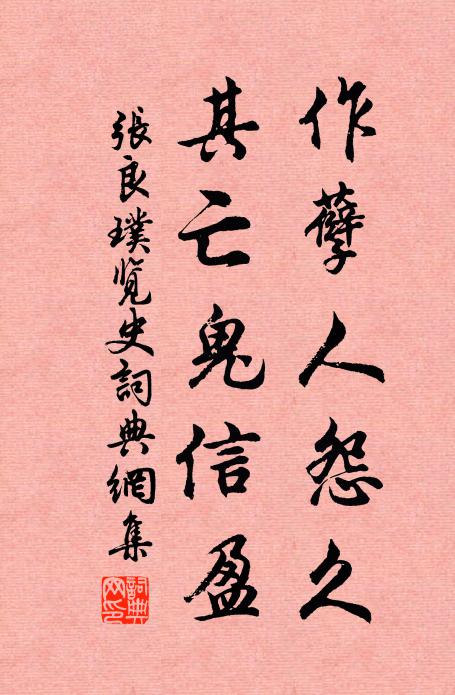 作孽人怨久
其亡鬼信盈
張良璞览史詞典網集
詞典網印